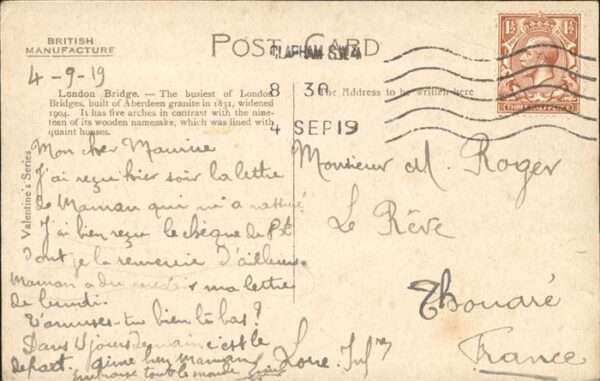 BRITISH
MANUFACTURE
POST CARD
CLAPHAM S.W.4
8 30
4 SEP 19
4-9-19
London Bridge. — The busiest of London
Bridges, built of Aberdeen granite in 1831, widened
1904. It has five arches in contrast with the nine-
teen of its wooden namesake, which was lined with
quaint houses.
The Address to be written here
Valentine's Series
Mon cher Maurice
J'ai reçu hier soir la lettre
de Maman qui m'a
J'ai bien reçu le chèque de
dont je la remercie d'ailleurs
Maman a du ma lettre
de lundi.
T'amuses-tu bien là bas?
Dans jours demain c'est le
départ. Aime bien maman
embrasse tout le monde
Monsieur M. Roger
Le Rêve
Thouaré
Loire Infre
France